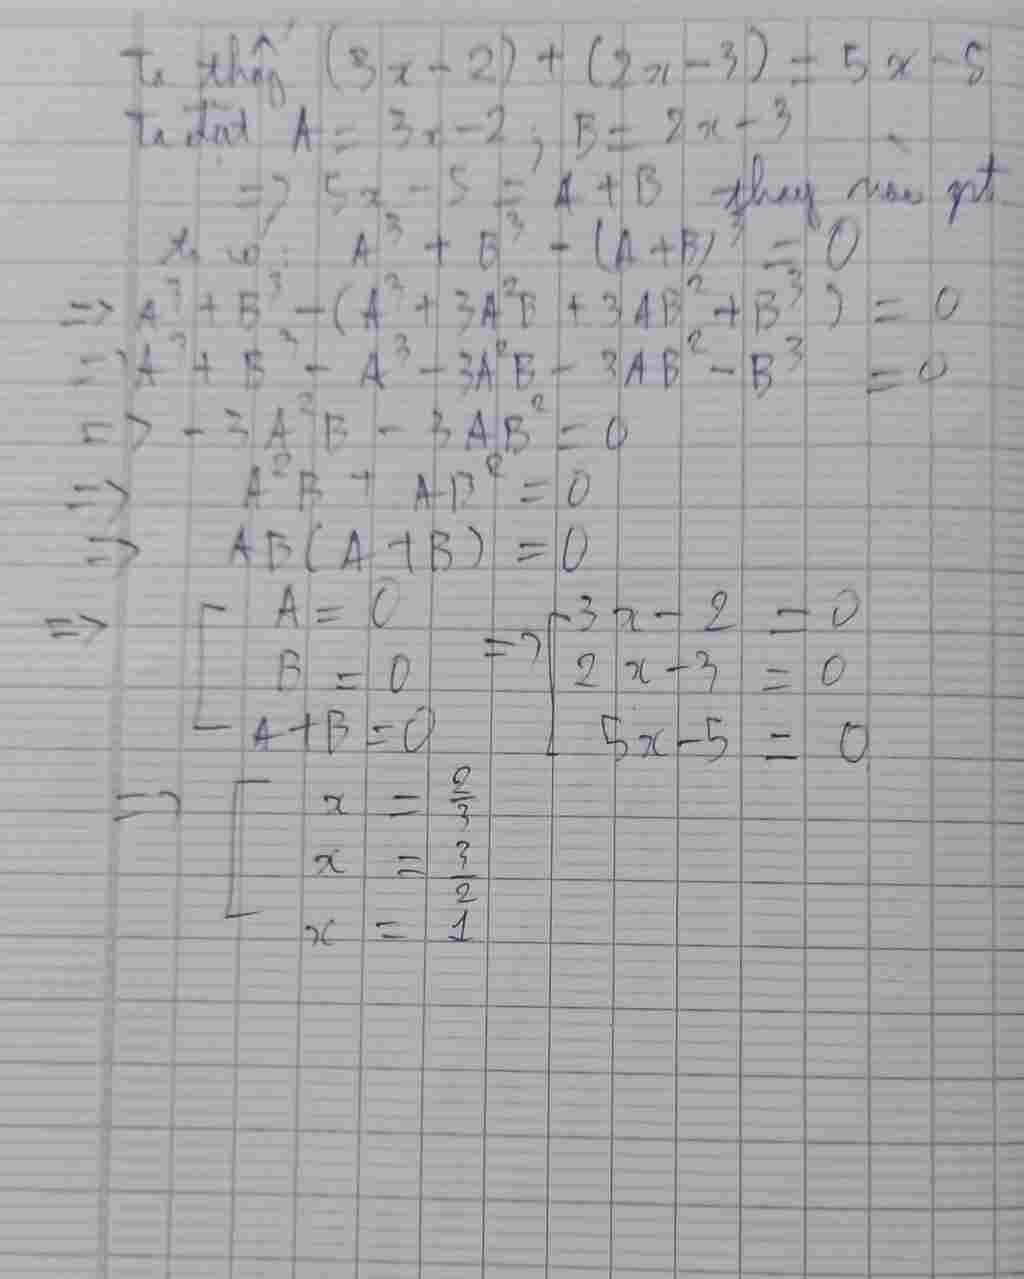 Ta thấy (3x-2) + (2x-3) = 5x-5
Ta đặt A = 3x-2; B = 2x-3
=> 5x-5 = A+B thay vào pt
ta có: A³ + B³ - (A+B)³ = 0
=> A³ + B³ - (A³ + 3A²B + 3AB² + B³) = 0
=> A³ + B³ - A³ - 3A²B - 3AB² - B³ = 0
=> -3A²B - 3AB² = 0
=> A²B + AB² = 0
=> AB(A+B) = 0
=> [ A = 0 => [ 3x-2 = 0
B = 0 2x-3 = 0
A+B = 0 5x-5 = 0
=> [ x = 2/3
x = 3/2
x = 1